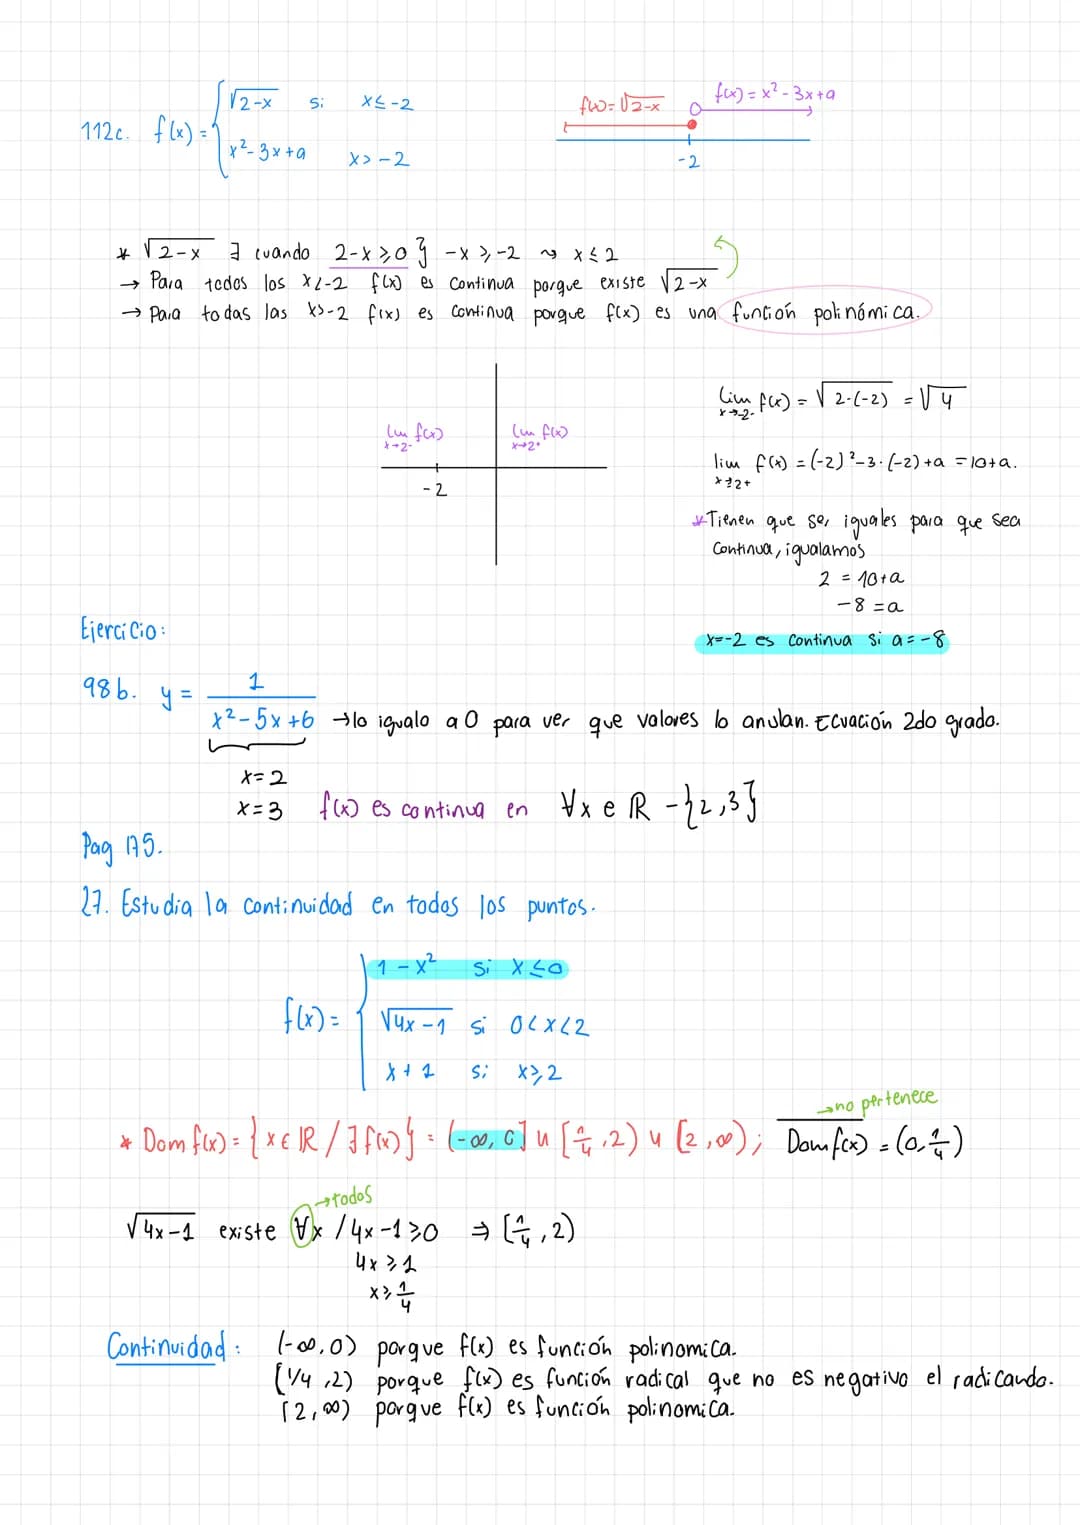 112c. f(x) = { √2-x si x≤-2
x²-3x+a x>-2
f(x)=√2-x f(x)=x²-3x+a
-2
* √2-x ∃ cuando 2-x≥0 } -x≥-2 ⤳ x≤2
→ Para todos los x<-2 f(x) es continua porque existe √2-x
→ Para todas las x>-2 f(x) es continua porque f(x) es una función polinómica.
lim f(x) x→2- lim f(x) x→2+
-2
lim f(x) = √2-(-2) = √4
x→-2-
lim f(x) = (-2)²-3·(-2)+a = 10+a.
x→2+
*Tienen que ser iguales para que sea
continua, igualamos
2 = 10+a
-8 = a
x=-2 es continua si a=-8
Ejercicio:
98b. y = 1/(x²-5x+6) → lo igualo a 0 para ver que valores lo anulan. Ecuación 2do grado.
x=2
x=3 f(x) es continua en ∀x e ℝ -{2,3}
Pag 175.
27. Estudia la continuidad en todos los puntos.
f(x) = { 1-x² si x≤0
√4x-1 si 0<x<2
x+1 si x≥2
→no pertenece
* Dom f(x) = {x∈ℝ / ∃f(x)} = (-∞, 0] u [1/4, 2) u [2, ∞); Dom f(x) = (0, 1/4)
→todos
√4x-1 existe ∀x / 4x-1≥0 ⇒ [1/4, 2)
4x≥1
x≥1/4
Continuidad: (-∞, 0) porque f(x) es función polinomica.
[1/4, 2) porque f(x) es función radical que no es negativo el radicando.
[2, ∞) porque f(x) es función polinomica.